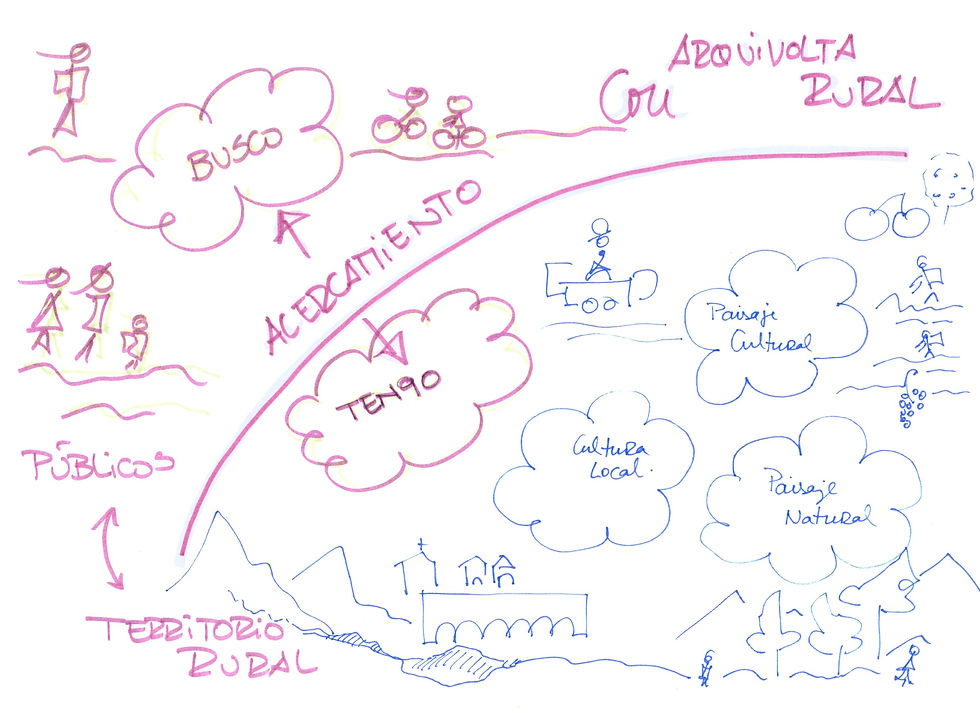 ARQUIVOLTA
Con RURAL
BUSCO
ACERCAMIENTO
TENgO
Paisaje
Cultural
Cultura
Local.
Paisaje
Natural
PÚBLICOS
TERRITORIO
RURAL